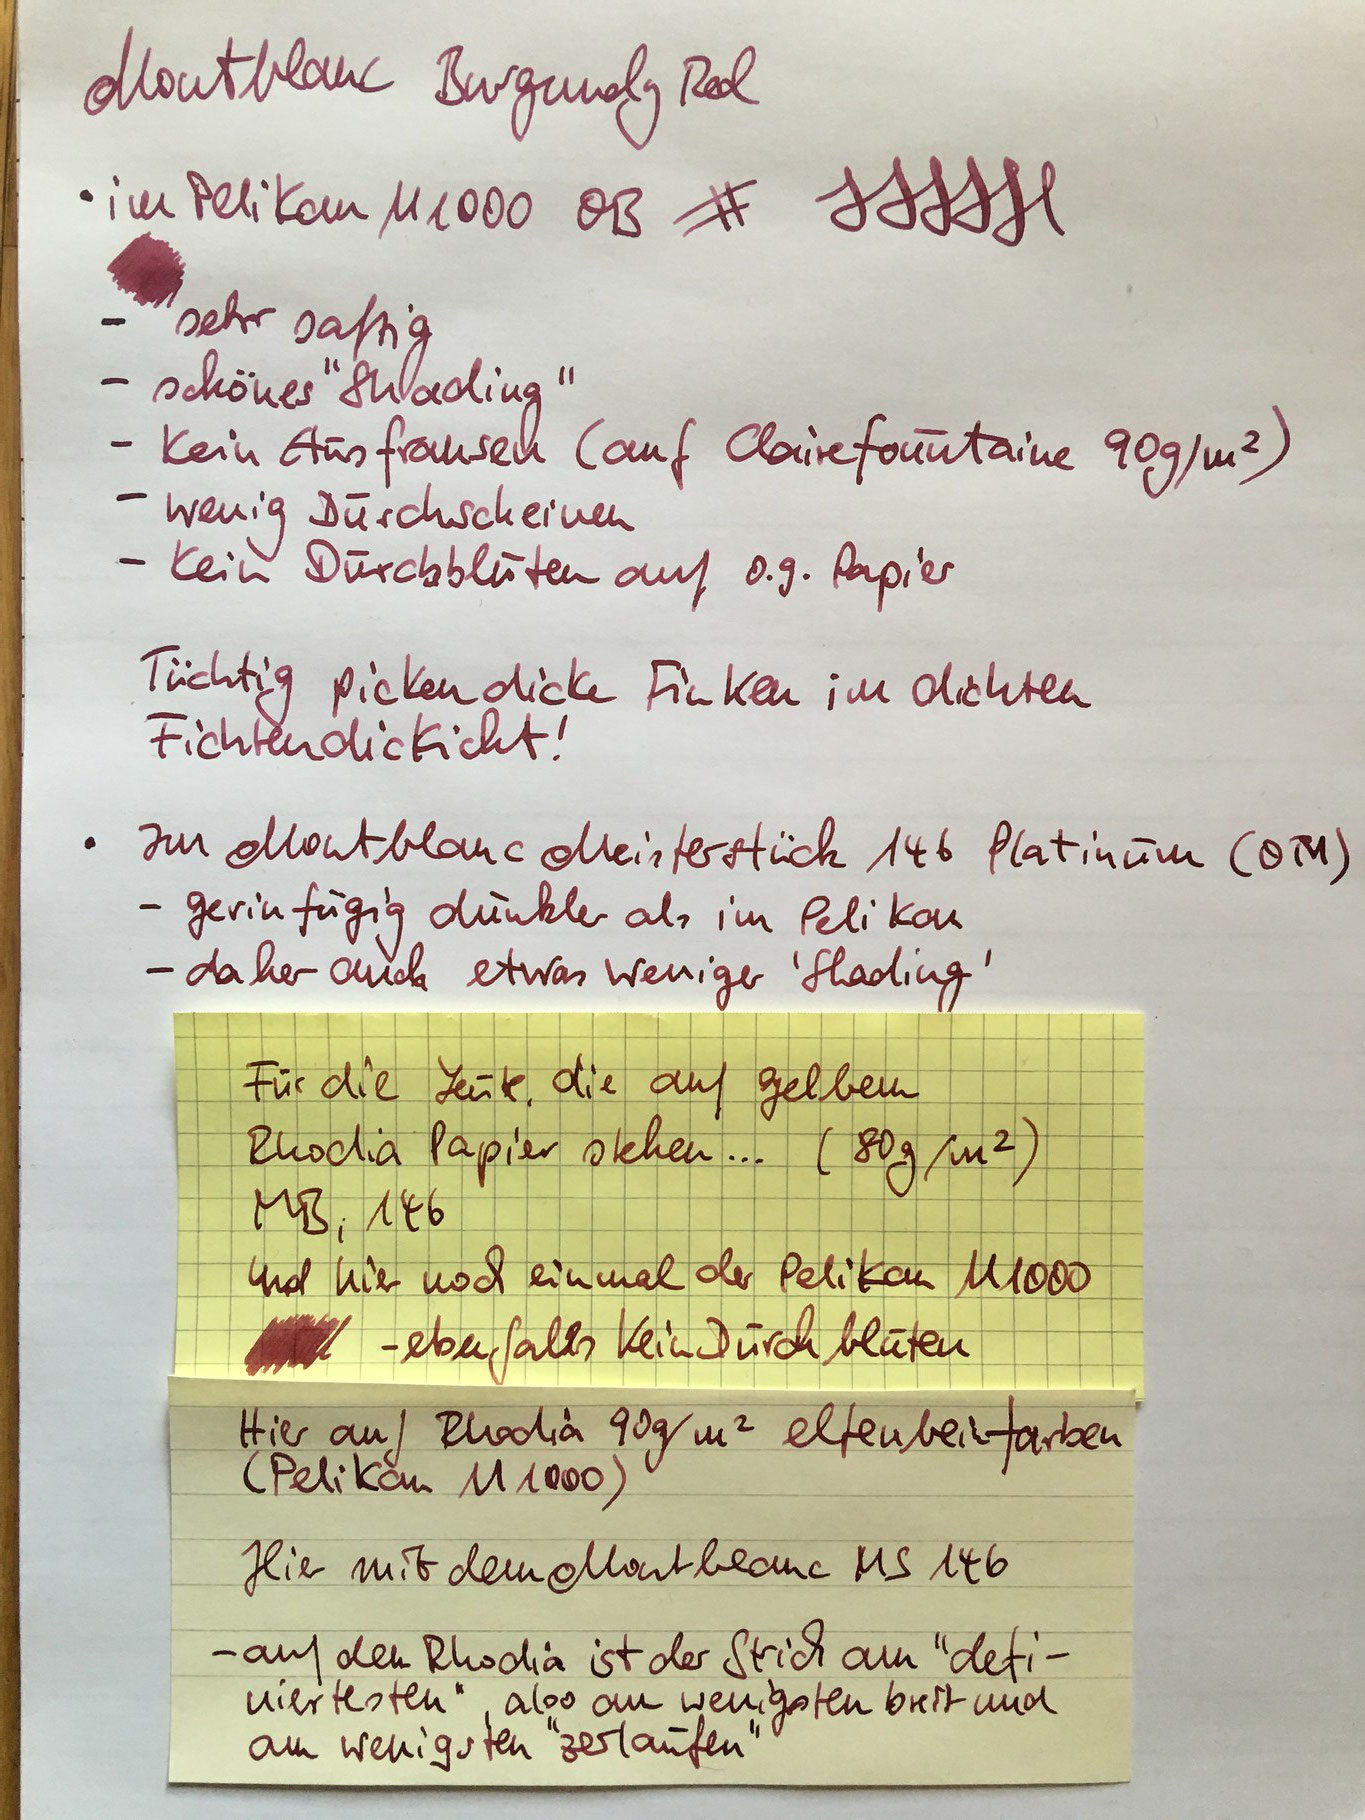 Montblanc Burgundy Red
• im Pelikan M1000 OB
- sehr saftig
- schönes "Shading"
- Kein Ausfransen (auf Clairefountaine 90g/m²)
- wenig Durchscheinen
- Kein Durchbluten auf o.g. Papier
Tüchtig picken dicke Finken im dichten
Fichtendickicht!
• Im Montblanc Meisterstück 146 Platinum (OM)
- gerinfügig dunkler als im Pelikan
- daher auch etwas weniger 'Shading'
Für die Leute, die auf gelbem
Rhodia Papier stehen... (80g/m²)
MB, 146
und hier noch einmal der Pelikan M1000
- ebenfalls kein Durchbluten
Hier auf Rhodia 90g/m² elfenbeinfarben
(Pelikan M1000)
Hier mit dem Montblanc MS 146
- auf dem Rhodia ist der Strich am "defi-
niertesten", also am wenigsten breit und
am wenigsten "zerlaufen"